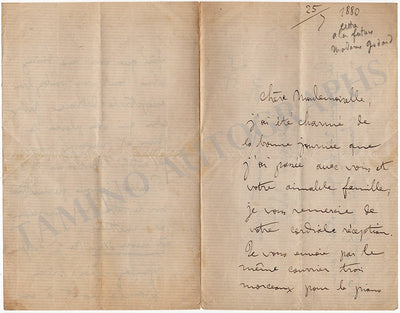 25/7 1880
a la future
Madame Godard
Chère Mademoiselle,
j'ai été charmé de
la bonne journée que
j'ai passée avec vous et
votre aimable famille,
je vous remercie de
votre cordiale réception.
Je vous envoie par le
même courrier trois
morceaux pour le piano
TAMINO AUTOGRAPHS